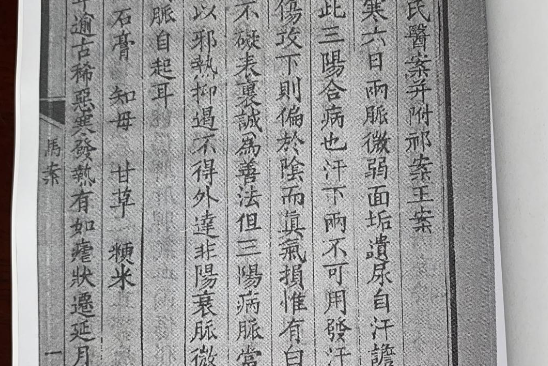 氏醫案并附祁案王案
寒六日兩脈微弱面垢遺尿自汗譫
此三陽合病也汗下兩不可用發汗
傷攻下則偏於陰而眞氣損惟有白
不礙表裏誠為善法但三陽病脈當
以邪熱抑遏不得外達非陽衰脈微
脈自起耳
石膏 知母 甘草 粳米
年逾古稀惡寒發熱有如瘧狀遷延月
馬案
一